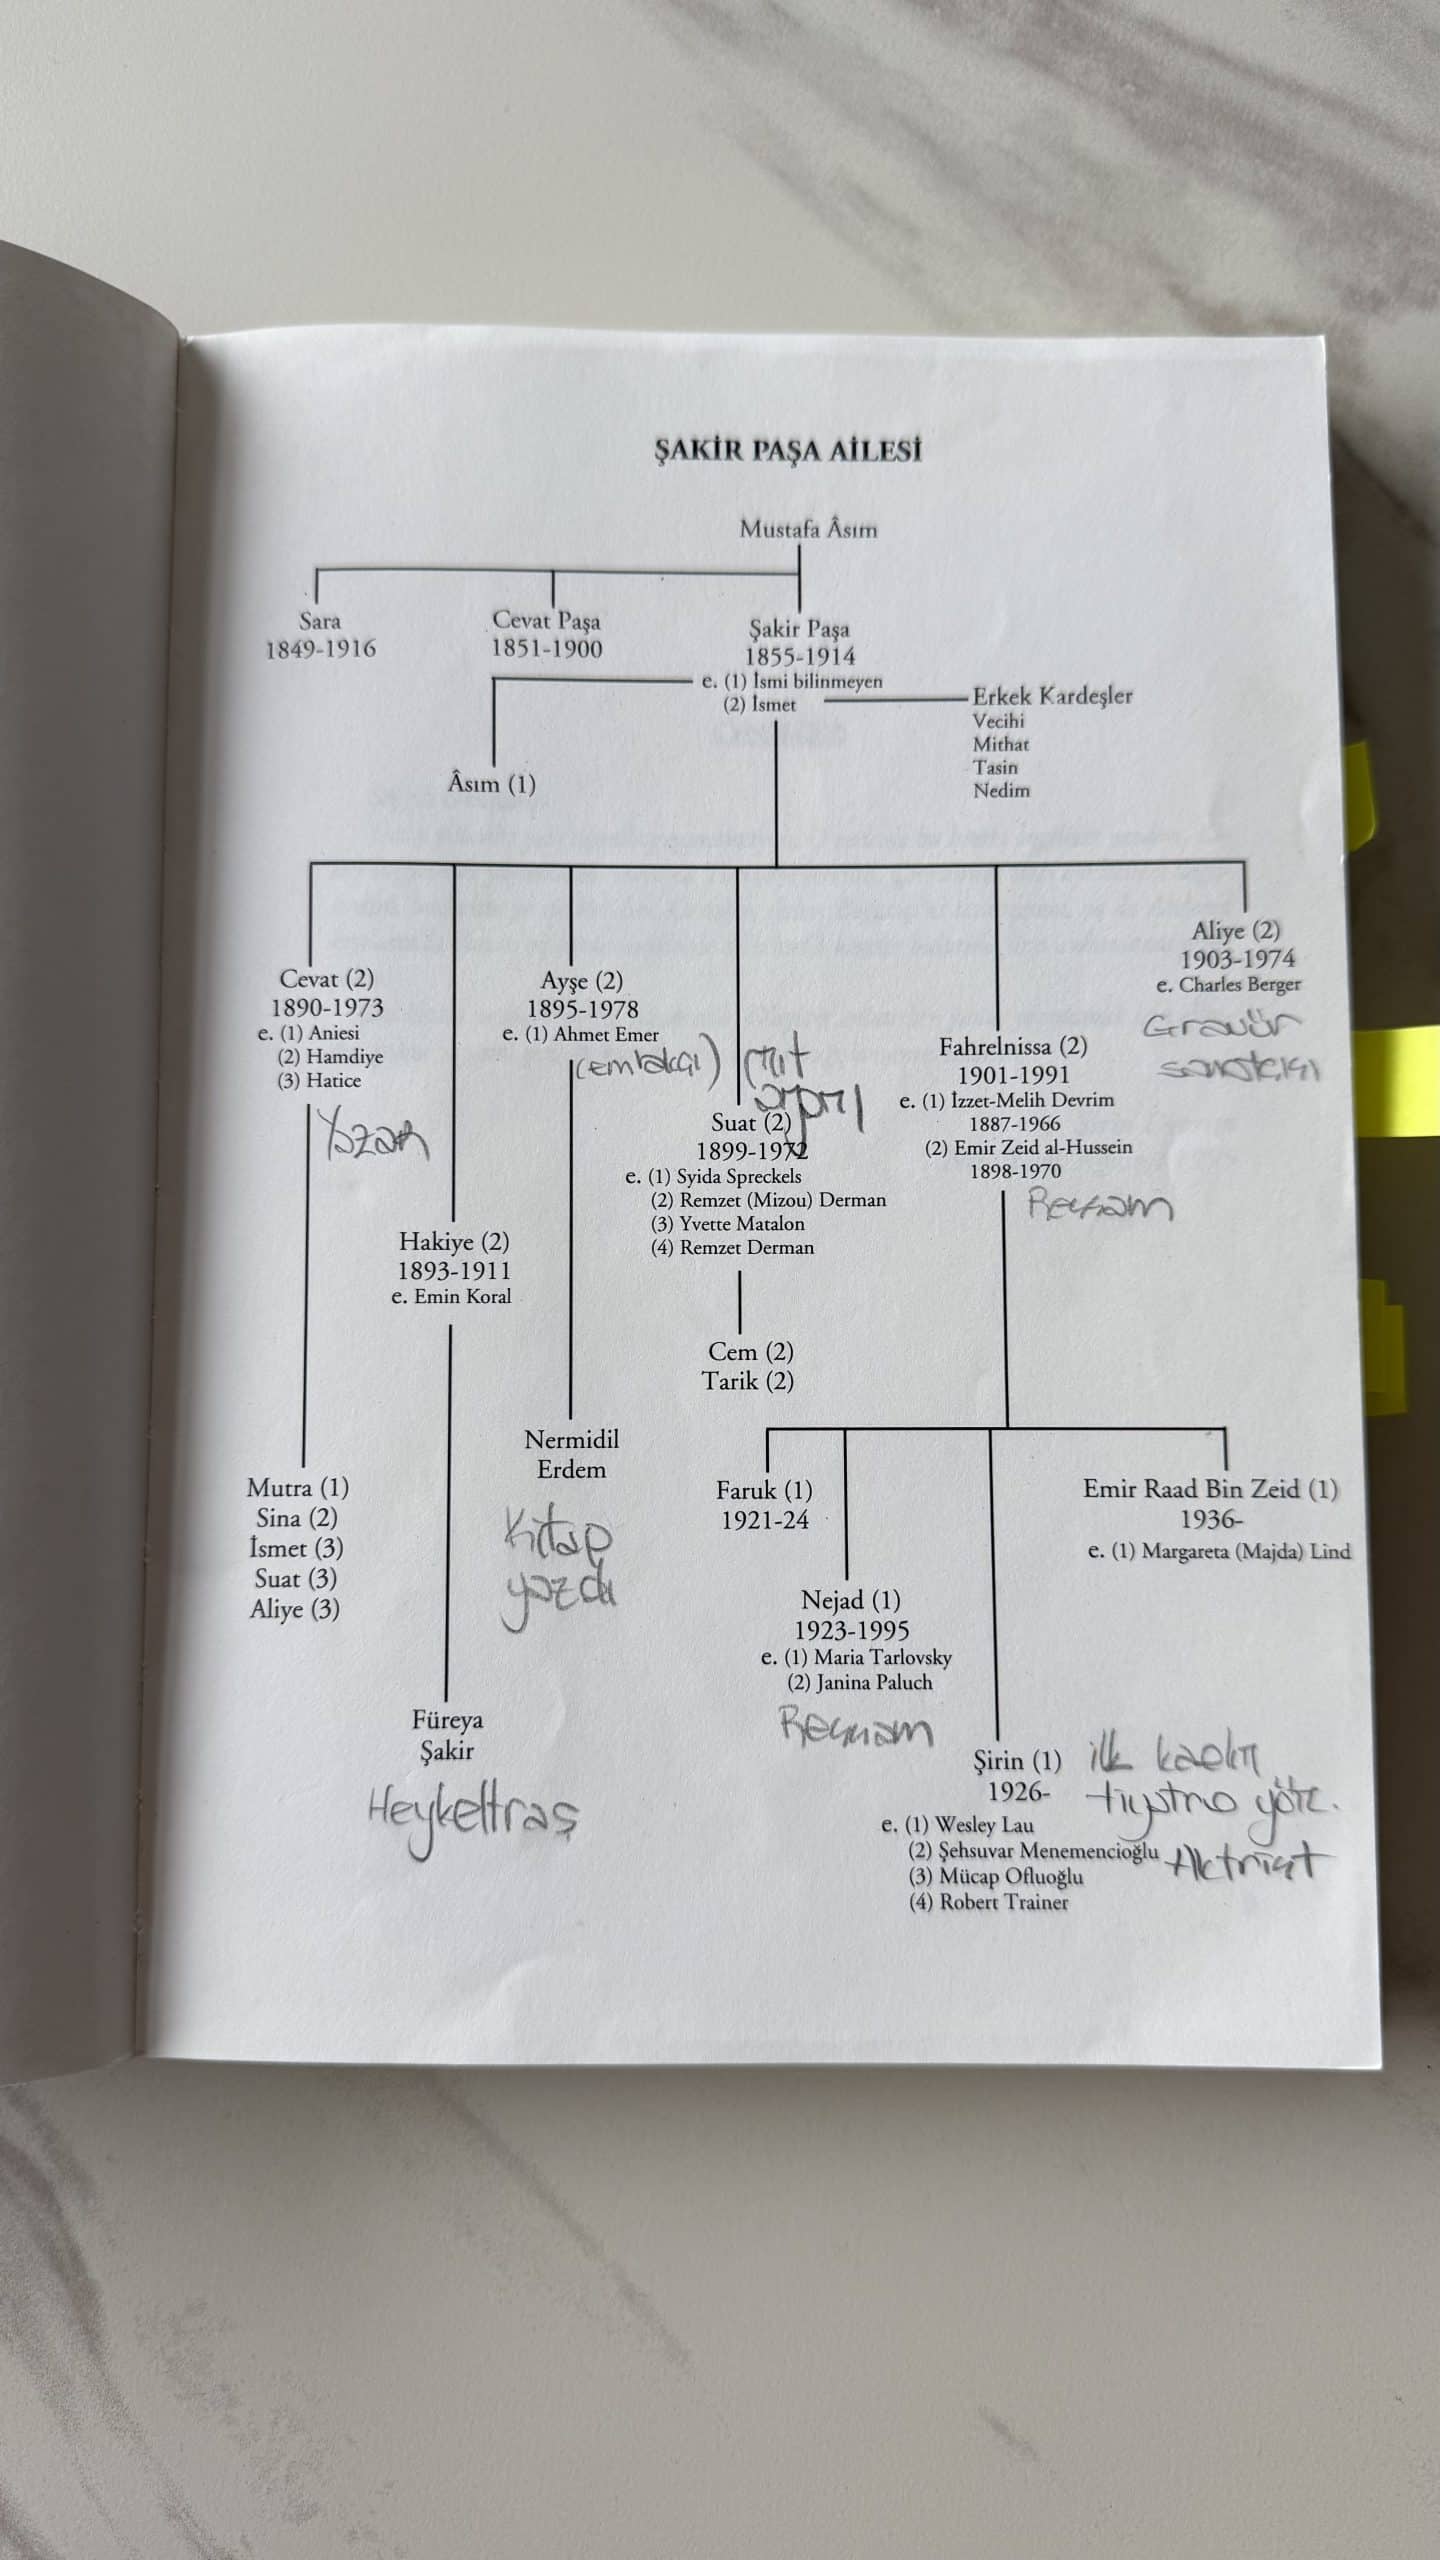 ŞAKİR PAŞA AİLESİ
Mustafa Âsım
Sara
1849-1916
Cevat Paşa
1851-1900
Şakir Paşa
1855-1914
e. (1) İsmi bilinmeyen
(2) İsmet
Erkek Kardeşler
Vecihi
Mithat
Tasin
Nedim
Âsım (1)
Cevat (2)
1890-1973
e. (1) Aniesi
(2) Hamdiye
(3) Hatice
Yazar
Hakiye (2)
1893-1911
e. Emin Koral
Ayşe (2)
1895-1978
e. (1) Ahmet Emer
Suat (2)
1899-1972
e. (1) Syida Spreckels
(2) Remzet (Mizou) Derman
(3) Yvette Matalon
(4) Remzet Derman
Fahrelnissa (2)
1901-1991
e. (1) İzzet-Melih Devrim
1887-1966
(2) Emir Zeid al-Hussein
1898-1970
Ressam
Aliye (2)
1903-1974
e. Charles Berger
Gravür
sanatçısı
Cem (2)
Tarik (2)
Mutra (1)
Sina (2)
İsmet (3)
Suat (3)
Aliye (3)
Füreya
Şakir
Heykeltraş
Nermidil
Erdem
Kitap
yazdı
Faruk (1)
1921-24
Nejad (1)
1923-1995
e. (1) Maria Tarlovsky
(2) Janina Paluch
Ressam
Şirin (1)
1926-
e. (1) Wesley Lau
(2) Şehsuvar Menemencioğlu
(3) Mücap Ofluoğlu
(4) Robert Trainer
ilk kadın
tiyatro yön.
Aktrist
Emir Raad Bin Zeid (1)
1936-
e. (1) Margareta (Majda) Lind